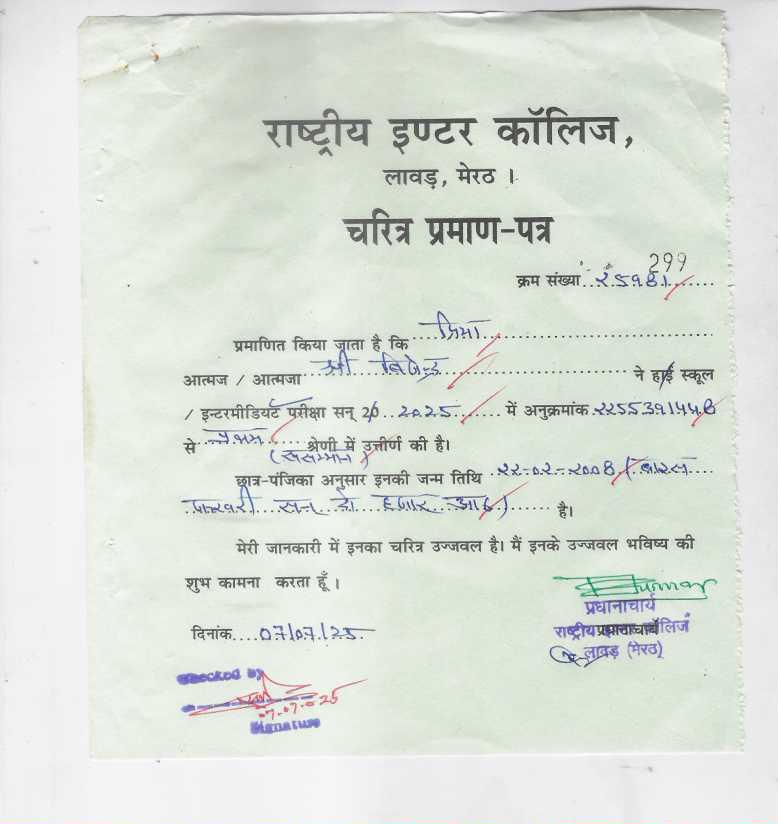 राष्ट्रीय इण्टर कॉलिज,
लावड़, मेरठ ।
चरित्र प्रमाण-पत्र
299
क्रम संख्या
प्रमाणित किया जाता है कि प्रिया
आत्मज / आत्मजा श्री बिजेन्द्र ने हाई स्कूल
/ इन्टरमीडियट परीक्षा सन् 20 2025 में अनुक्रमांक
से प्रथम श्रेणी में उत्तीर्ण की है।
(ससम्मान)
छात्र-पंजिका अनुसार इनकी जन्म तिथि २२-०२-२००8 (बाइस
फरवरी सन् दो हजार आठ) है।
मेरी जानकारी में इनका चरित्र उज्जवल है। मैं इनके उज्जवल भविष्य की
शुभ कामना करता हूँ ।
प्रधानाचार्य
दिनांक 07/07/25
राष्ट्रीय कॉलिज
लावड़ (मेरठ)
Checked by
Signature